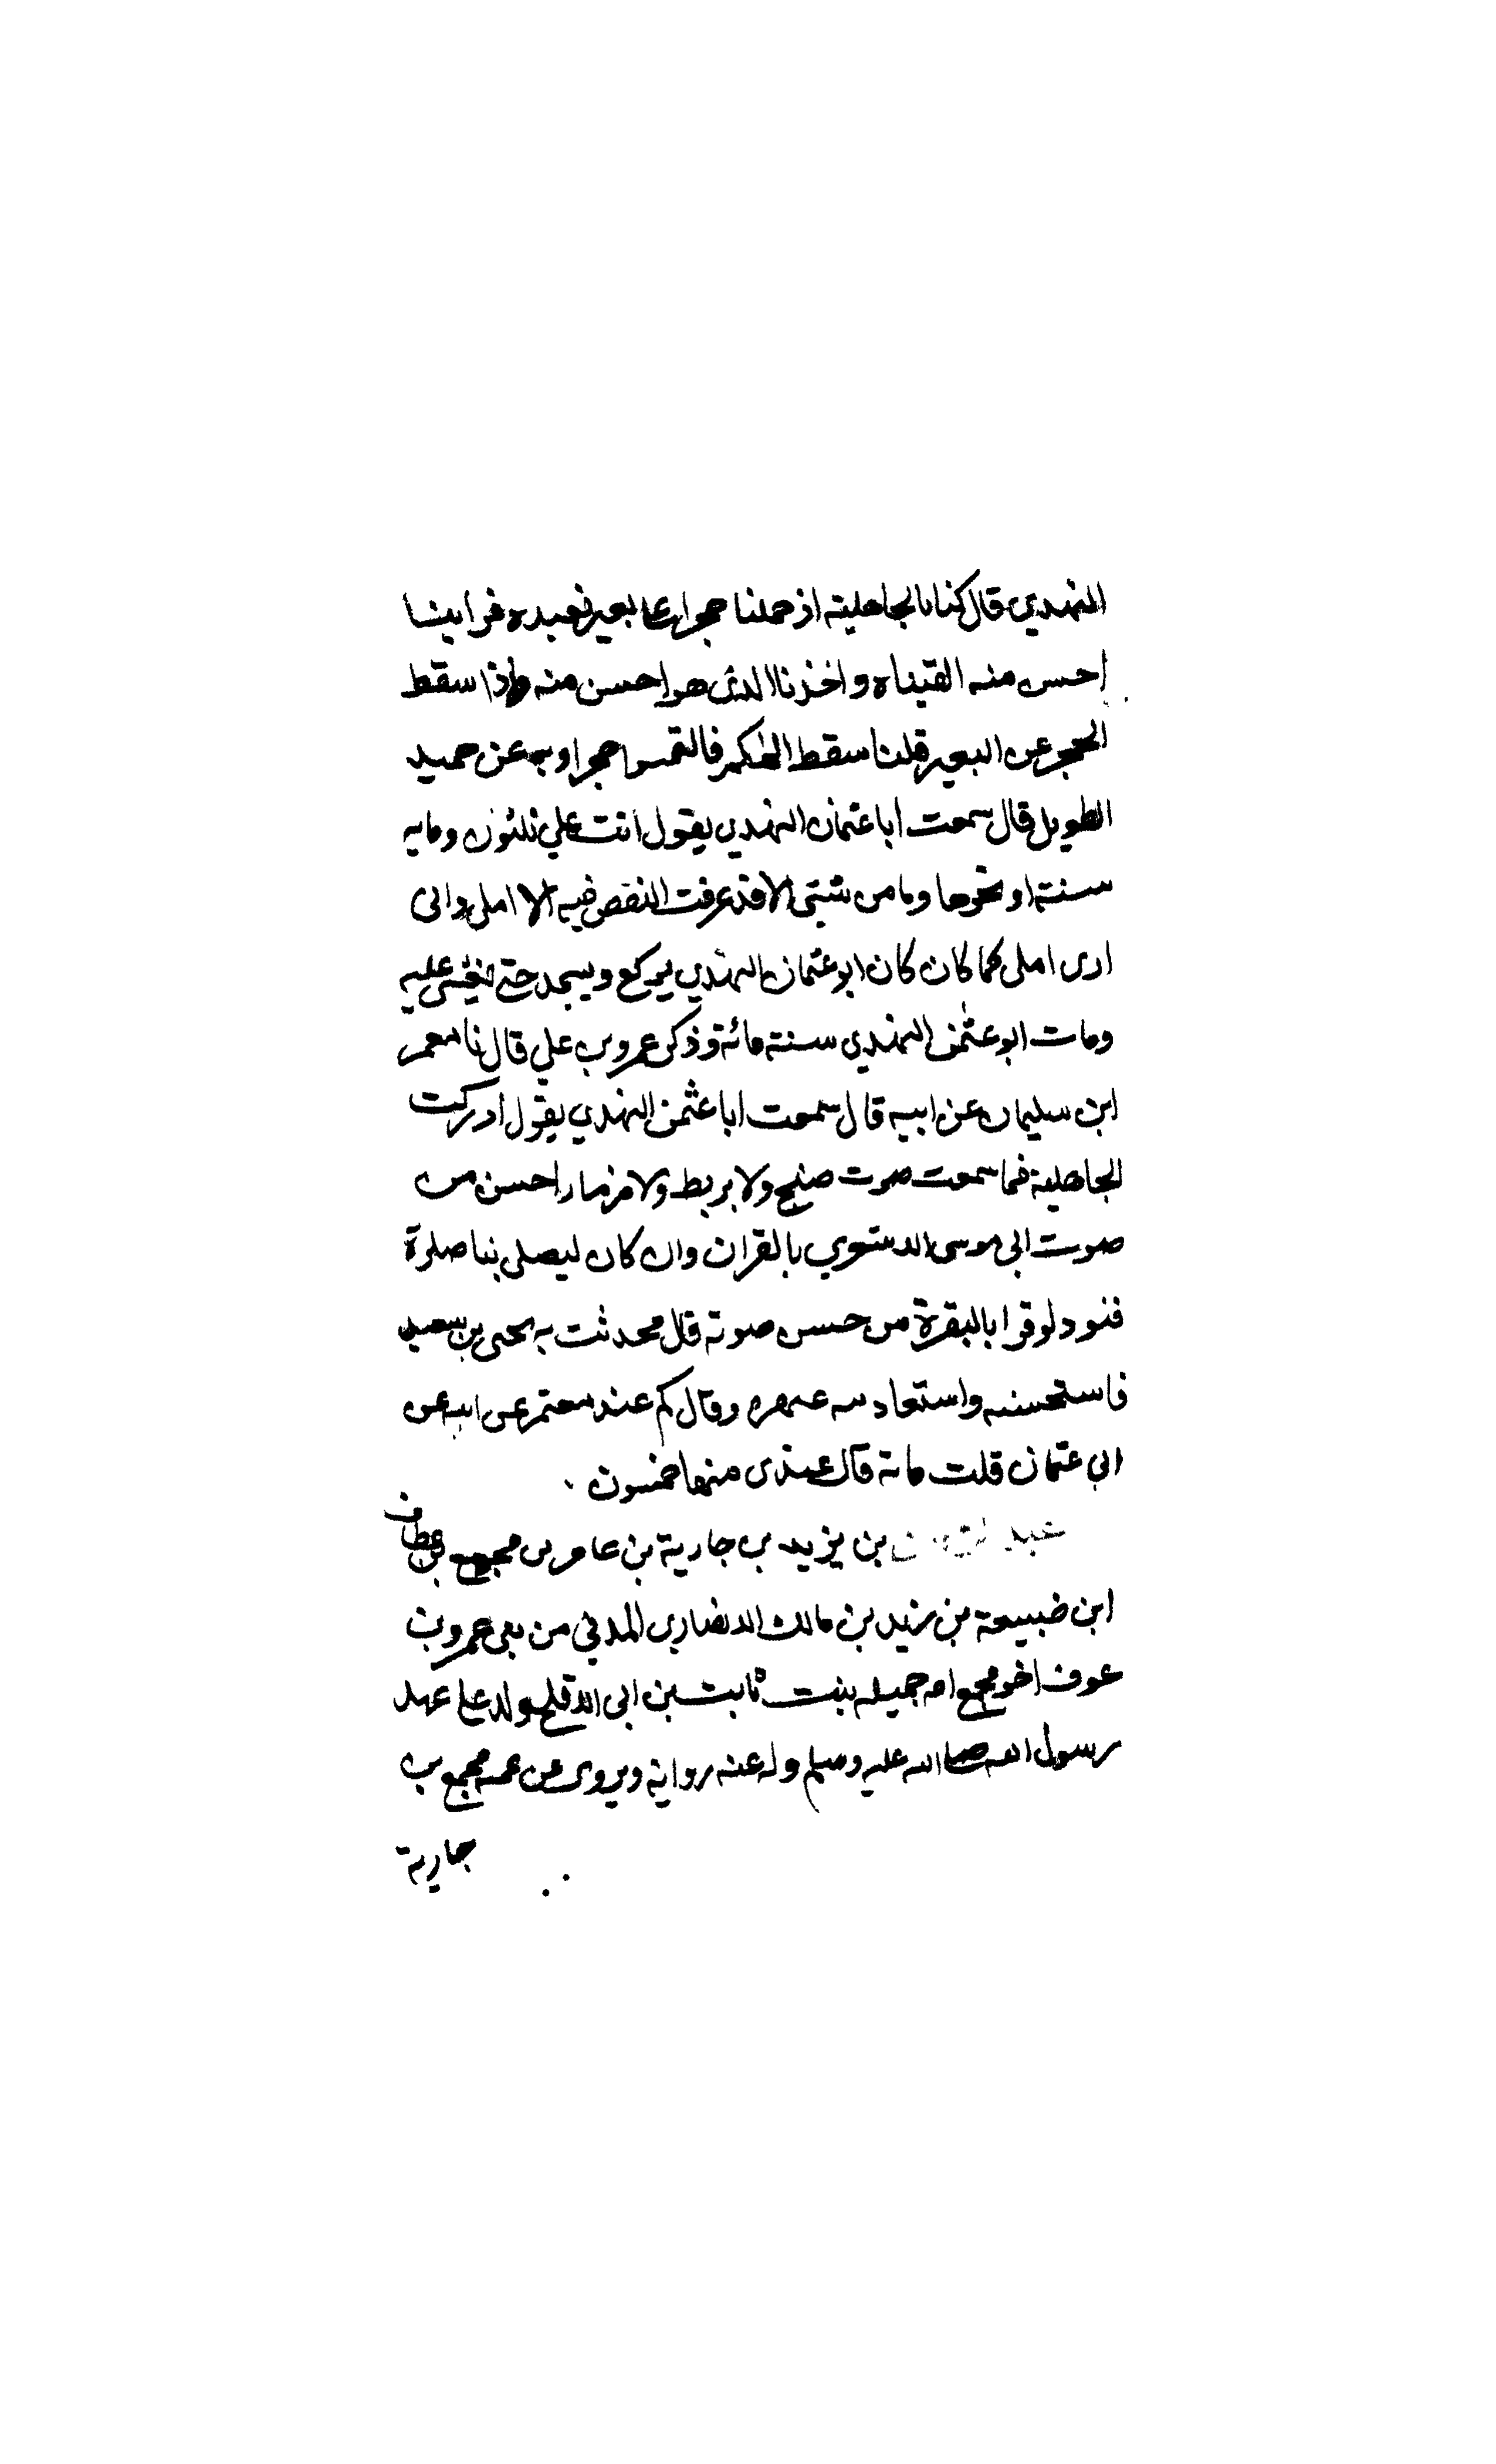 النهدي قال كنا بالجاهلية اذ حملنا حجرا على بعير نعبده فراينا
احسن منه القيناه واخذنا الذي هو احسن منه واذا سقط
الحجر عن البعير قلنا سقط الهكم فالتمسوا حجرا وبه عن حميد
الطويل قال سمعت ابا عثمان النهدي يقول اتت علي ثلثون ومايه
سنة او نحوها وما من شيئ الا قد عرفت النقص فيه الا املي واني
ارى املي كما كان كان ابو عثمان النهدي يركع ويسجد حتى يغشى عليه
ومات ابو عثمن النهدي سنة مائة وذكر عمرو بن علي قال نا معمر
ابن سليمان عن ابيه قال سمعت ابا عثمن النهدي يقول ادركت
الجاهلية فما سمعت صوت صنج ولا بربط ولا مزمار احسن من
صوت ابي موسى الاشعري بالقران وان كان ليصلي بنا صلوة
فنود لو قرا بالبقرة من حسن صوته قال فحدثت به يحيى بن سعيد
فاستحسنه واستعاد وقال كم عند معتمر عن ابيه عن
ابي عثمان قلت مائة قال عندي منها خمسون
عبد بن يزيد بن جارية بن عامر بن مجمع بن عطاف
ابن ضبيعة بن زيد بن مالك الانصاري المدني من بني عمرو بن
عوف اخو مجمع امه جميله بنت ثابت بن ابي الاقلح ولد على عهد
رسول الله صلى الله عليه وسلم وله عنه رواية ويروى عن عمه مجمع بن
جارية